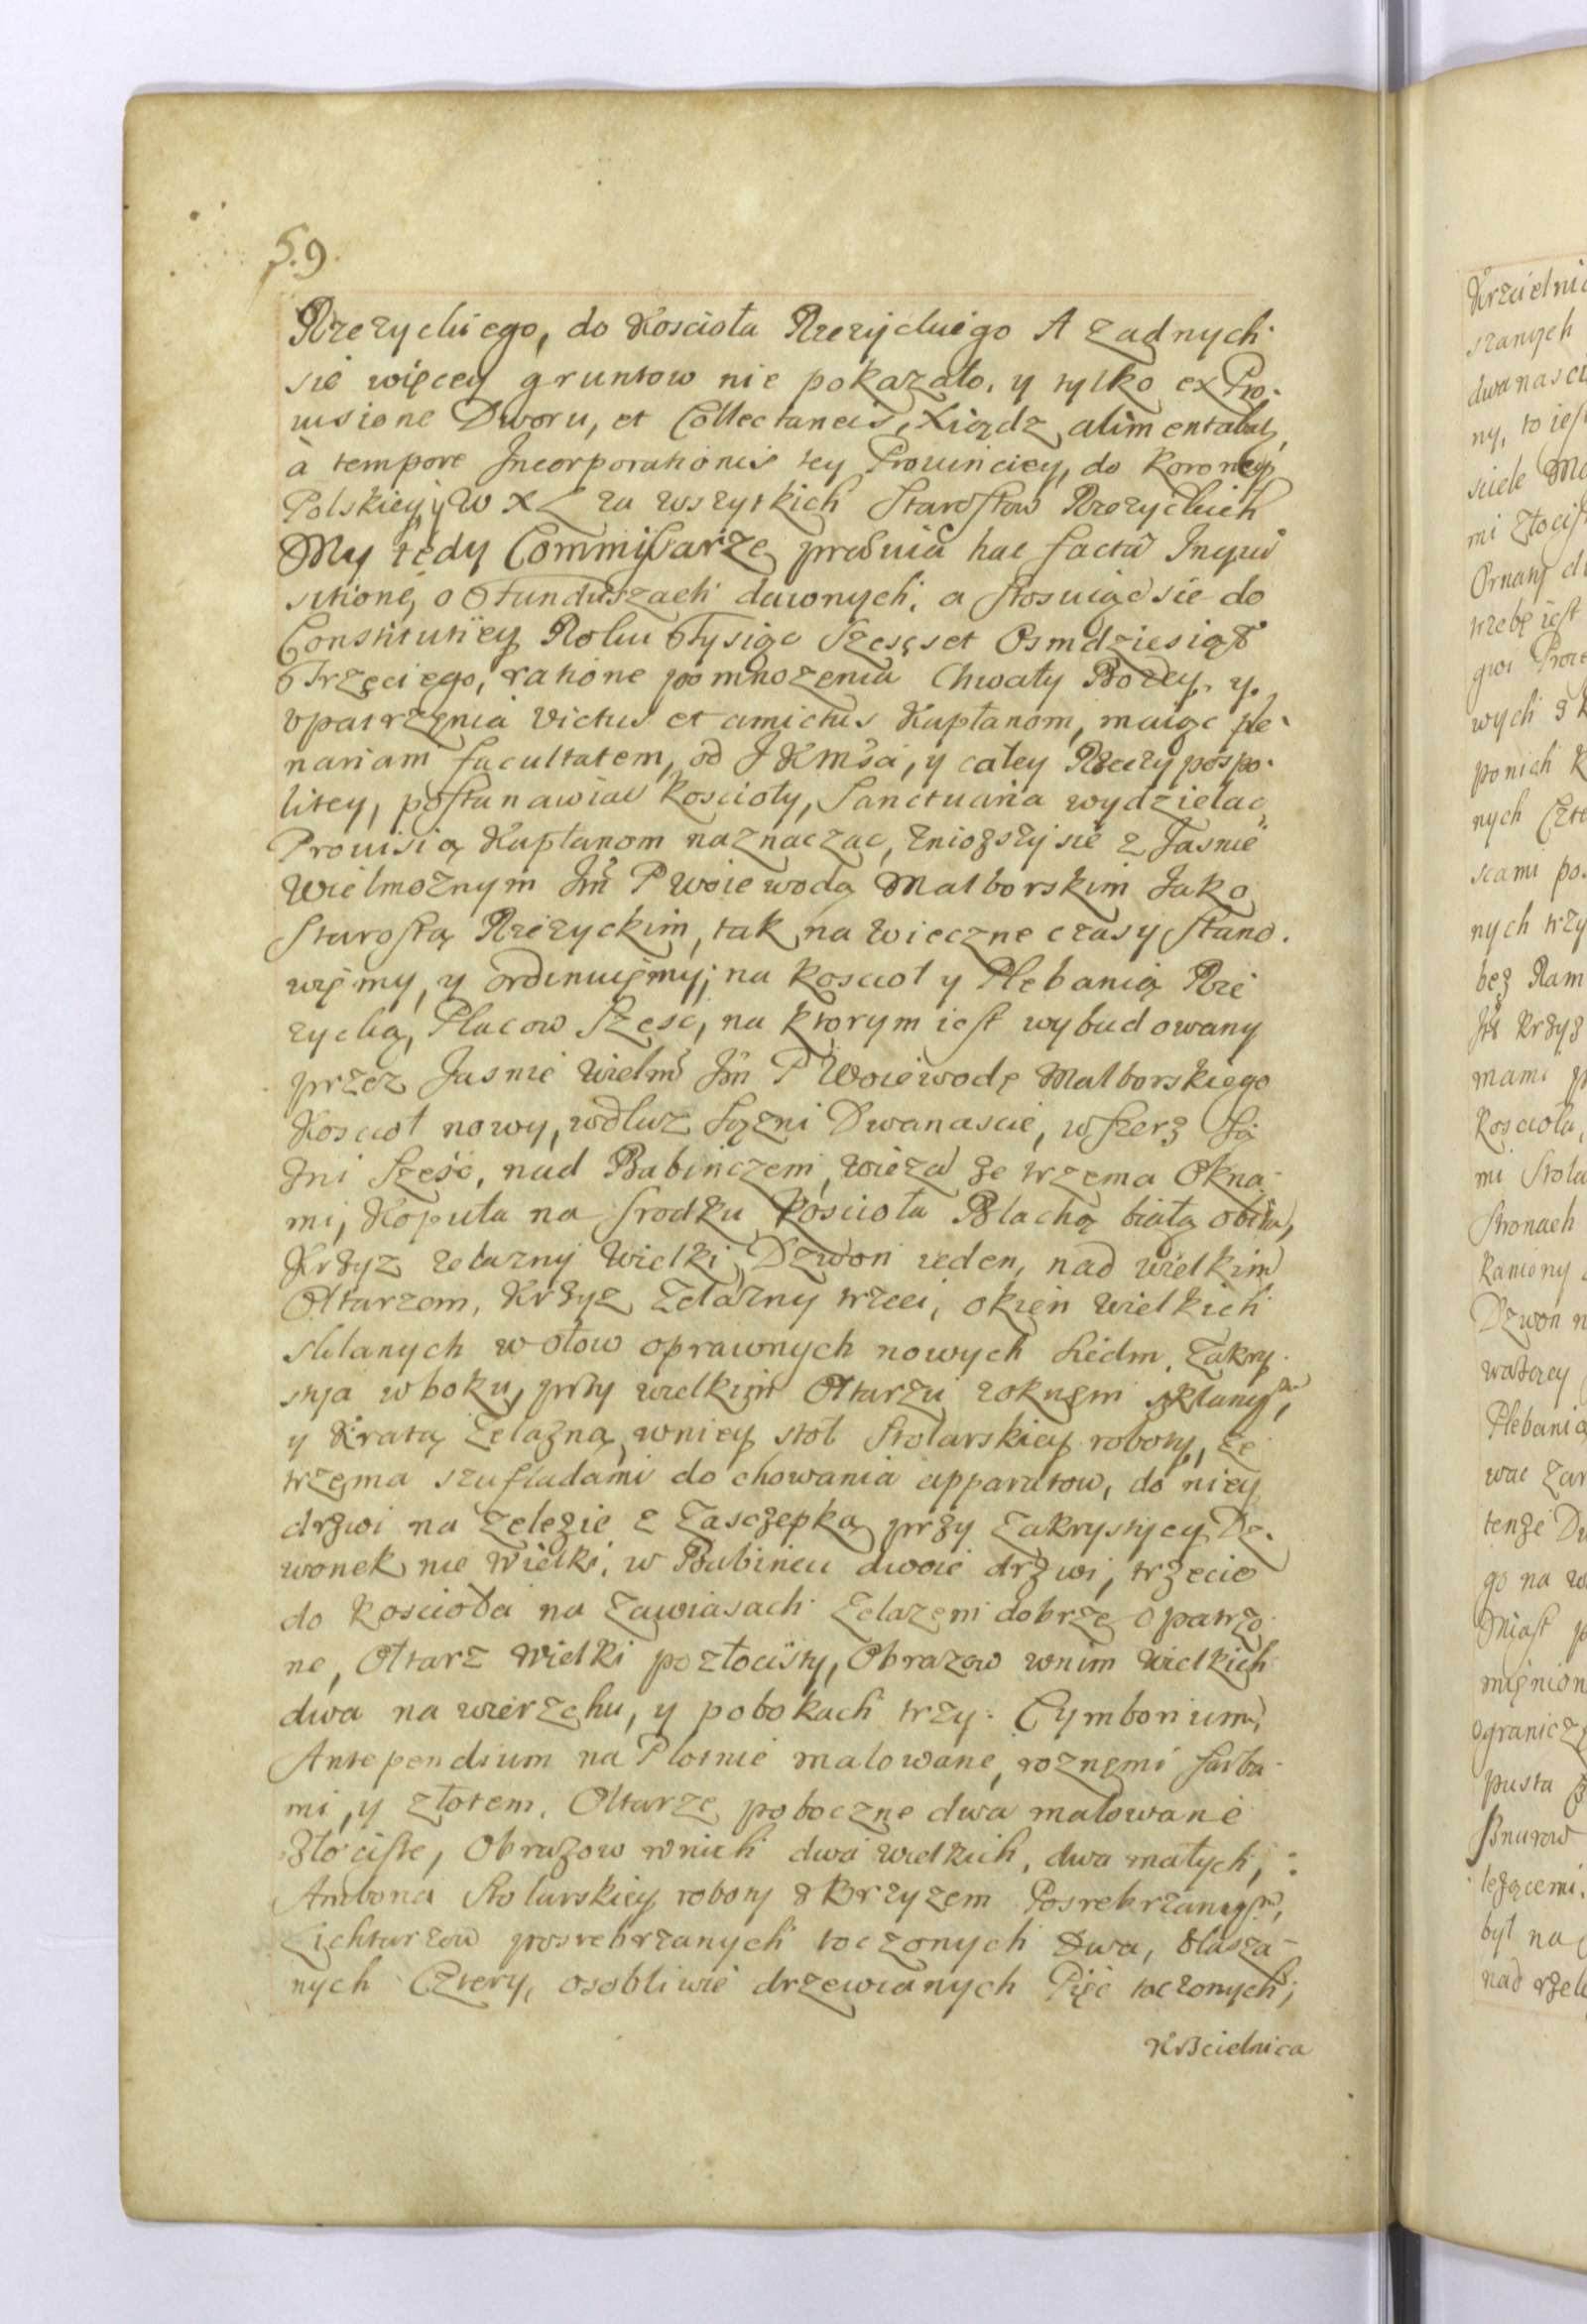 59.
Rzezyckiego, do Koscioła Rzezyckiego A zadnych
sie więcey gruntow nie pokazało, y tylko ex Pro-
uisione Dworu, et Collectaneis, Xiądz alimentabat,
à tempore Incorporationis tey Prouinciey, do Koroney
Polskiey y W X L za wszytkich Starostow Rzezyckich
My tedy Commissarze praeuia hac facta Inqui
sitione, o Funduszach dawnych, a stosuiąc sie do
Constitutiey Roku Tysiąc Szescset Osmdziesiąt
Trzeciego, ratione pomnozenia Chwały Bozey, y
opatrzenia victus et amictus Kapłanom, maiąc ple-
nariam facultatem, od J K Msci, y całey Rzeczypospo-
litey, postanawiac Koscioły, Sanctuaria wydzielac,
Prouisią Kapłanom naznaczac, zniozszy sie z Jasnie
Wielmoznym Jm P Woiewodą Malborskim Jako
Starostą Rzezyckim, tak na wieczne czasy stano-
wiemy, y ordinuiemy; na Kosciol y Plebanią Rze
zycką, Placow Szesc, na ktorym iest wybudowany
przez Jasnie Wielm Jm P Woiewodę Malborskiego
Kosciol nowy, wdłuz Sązni Dwanascie, wszerz Są
zni Szesc, nad Babinczem, wieza ze trzema Okna-
mi, Kopuła na srodku Kosciola Blachą białą obita,
Krzyz zelazny Wielki, Dzwon ieden, nad wielkim
Oltarzem, Krzyz Zelazny trzeci, okien wielkich
sklanych w ołow oprawnych nowych Siedm, Zakry-
stya w boku, przy wielkim Oltarzu z oknem sklanym,
y Kratą Zelazną, wniey stol Stolarskiey roboty, ze
trzema szufladami do chowania apparatow, do niey
drzwi na zelezie z Zasczepką przy Zakrystyey Dz-
wonek nie Wielki, w Babincu dwoie drzwi, trzecie
do Kosciola na Zawiasach Zelazem dobrze opatrzo
ne, Oltarz Wielki pozłocisty, Obrazow wnim Wielkich
dwa na wierzchu, y pobokach trzy. Cymborium,
Antependium na Plotnie malowane, roznemi farba-
mi, y złotem, Oltarze poboczne dwa malowane
Złociste, Obrazow wnich dwa wielkich, dwa małych,
Ambona Stolarskiey roboty z Krzyzem Posrebrzanym,
Lichtarzow posrebrzanych toczonych Dwa, blasza-
nych Cztery, osobliwie drzewianych Pięc toczonych;
Krzcielnica